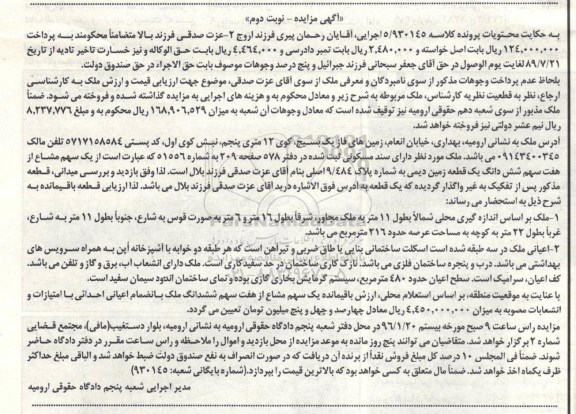 «آگهی مزایده – نوبت دوم»
به حکایت محتویات پرونده کلاسه ۵/۹۳۰۱۴۵ اجرایی، آقایان رحمان پیری فرزند اروج ۲–عزت صدقی فرزند بالا متضامناً محکومند به پرداخت
۱۲۴,۰۰۰,۰۰۰ ریال بابت اصل خواسته و ۲,۴۸۰,۰۰۰ ریال بابت تمبر دادرسی و ۴,۴۶۴,۰۰۰ ریال بابت حق الوکاله و نیز خسارت تاخیر تادیه از تاریخ
۸۹/۷/۲۱ لغایت یوم الوصول در حق آقای جعفر سبحانی فرزند جبرائیل و پنج درصد وجوهات موصوف بابت حق الاجراء در حق صندوق دولت.
بلحاظ عدم پرداخت وجوهات مذکور از سوی نامبردگان و معرفی ملک از سوی آقای عزت صدقی، موضوع جهت ارزیابی قیمت و ارزش ملک به کارشناسی
ارجاع، نظر به قطعیت نظریه کارشناس، ملک مربوطه به شرح زیر و معادل محکوم به و هزینه های اجرایی به مزایده گذاشته شده و فروخته می شود. ضمناً
ملک مذبور از سوی شعبه دهم حقوقی ارومیه نیز توقیف شده است که معادل وجوهات آن شعبه به میزان ۱۶۸,۹۰۶,۵۲۹ ریال محکوم به و مبلغ ۸,۲۳۷,۷۷۶
ریال نیم عشر دولتی نیز فروخته خواهد شد.
آدرس ملک به نشانی ارومیه، بهداری، خیابان انعام، زمین های فازیک بسیج، کوی ۱۲ متری پنجم، نبش کوی اول، کد پستی ۵۷۱۷۱۵۸۵۸۴ تلفن مالک
۰۹۱۴۳۴۰۰۳۴۵ می باشد. ملک مورد نظر دارای سند مسکونی ثبت شده در دفتر ۵۷۸ صفحه ۲۰۹ به شماره ۵۱۵۵۶ که عبارت است از یک سهم مشاع از
هفت سهم شش دانگ یک قطعه زمین دیمی به شماره پلاک ۹/۴۸۴ اصلی بنام آقای عزت صدقی فرزند بلال است. لذا وفق بازدید و بررسی میدانی، قطعه
مذکور پس از تفکیک به غیر واگذار گردیده که یک قطعه به آدرس فوق الاشاره درید آقای عزت صدقی فرزند بلال می باشد. لذا ارزیابی قطعه باقیمانده به
شرح ذیل به استحضار می رساند:
۱–ملک بر اساس اندازه گیری محلی شمالاً بطول ۱۱ متر به ملک مجاور، شرقاً بطول ۱۶ متر و ۶ متر به صورت قوس به شارع، جنوباً بطول ۱۱ متر به شارع،
غرباً بطول ۲۲ متر به کوچه به مساحت عرصه حدود ۲۱۶ مترمربع می باشد.
۲–اعیانی ملک در سه طبقه شده است اسکلت ساختمانی بنایی با طاق ضربی و تیرآهن است که هر طبقه دو خوابه با آشپزخانه اپن به همراه سرویس های
بهداشتی می باشد. درب و پنجره ساختمان فلزی می باشد. نازک کاری ساختمان در حد سفیدکاری است. ملک دارای انشعاب آب، برق و گاز و تلفن می باشد.
کف اعیان، سرامیک است. سطح اعیان حدود ۴۸۰ مترمربع، سیستم گرمایش بخاری گازی بوده و نمای ساختمان اندود سیمان سفید است.
با عنایت به موقعیت منطقه، بر اساس استعلام محلی، ارزش باقیمانده یک سهم مشاع از هفت سهم ششدانگ ملک بانضمام اعیانی احداثی با امتیازات و
انشعابات مصوبه به میزان ۴,۴۵۰,۰۰۰,۰۰۰ ریال معادل چهارصد و چهل و پنج میلیون تومان تعیین می گردد.
مزایده راس ساعت ۹ صبح مورخه بیستم ۹۶/۱/۲۰ در محل دفتر شعبه پنجم دادگاه حقوقی ارومیه به نشانی ارومیه، بلوار دستغیب(مافی)، مجتمع قضایی
شماره ۲ برگزار خواهد شد. متقاضیان می توانند پنج روز مانده به موعد مزایده از محل بازدید و اموال را ملاحظه و راس ساعت مقرر در دفتر دادگاه حاضر
شوند. ضمناً فی المجلس ۱۰ درصد کل مبلغ فروش نقداً از برنده آن دریافت که در صورت انصراف به نفع صندوق دولت ضبط خواهد شد و الباقی مبلغ حداکثر
ظرف یکماه اخذ خواهد شد. ضمناً مال متعلق به کسی خواهد بود که بالاترین قیمت را بپردازد.(شماره بایگانی شعبه: ۹۳۰۱۴۵)
مدیر اجرایی شعبه پنجم دادگاه حقوقی ارومیه